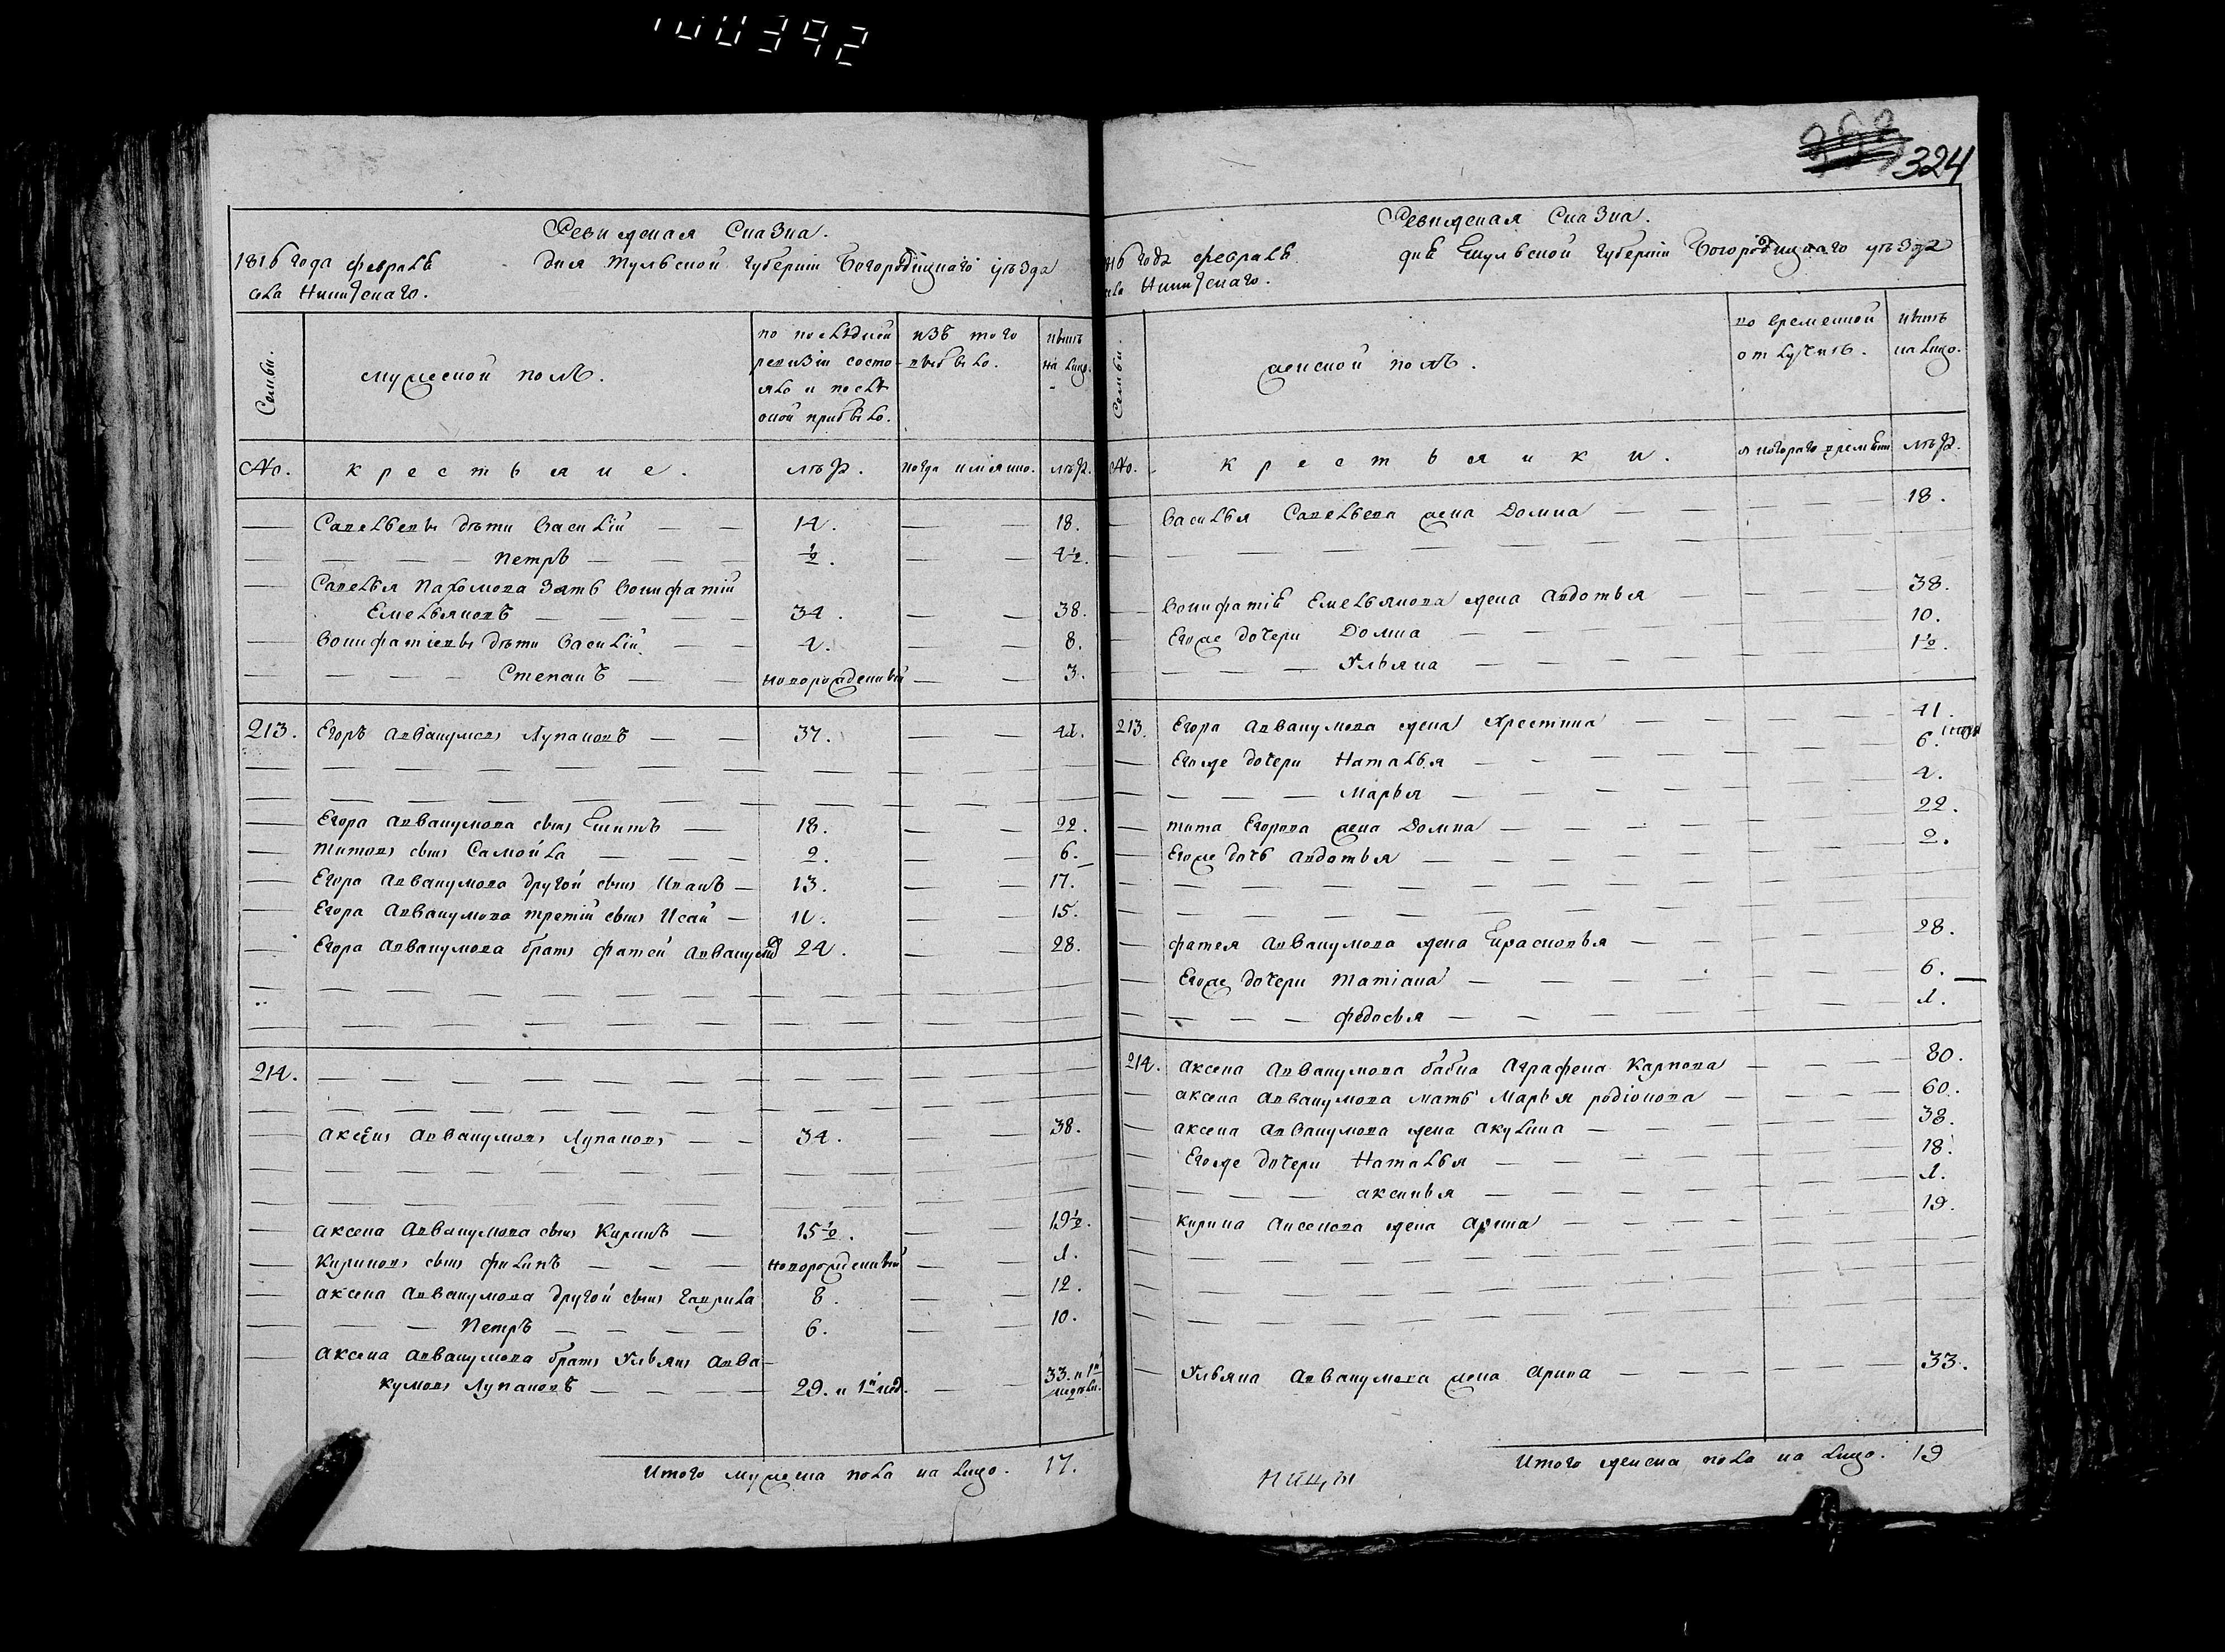 100392
324
Ревижская Сказка.
1816 года февраль дня Тульской губернiи Богородицкаго уѣзда
села Никитскаго.
Семьи.
мужеской полъ.
по послѣдней
ревизiи состо-
яло и послѣ
оной прибыло.
изъ того
выбыло.
нынѣ
на лицо.
No. крестьяне. лѣта. когда имянно. лѣта.
Савельевы дѣти Василiй 14. 18.
Петръ ½. 4½.
Савелья Пахомова зять Вонифатiй
Емельяновъ 34. 38.
Вонифатiевы дѣти Василiй 4. 8.
Степанъ новорожденный 3.
213. Егоръ Аввакумовъ Лупановъ 37. 41.
Егора Аввакумова сынъ Титъ 18. 22.
Титовъ сынъ Самойла 2. 6.
Егора Аввакумова другой сынъ Иванъ 13. 17.
Егора Аввакумова третiй сынъ Исай 11. 15.
Егора Аввакумова братъ Фатей Аввакумовъ 24. 28.
214.
Аксенъ Аввакумовъ Лупановъ 34. 38.
Аксена Аввакумова сынъ Киринъ 15½. 19½.
Кириновъ сынъ Филипъ новорожденный 1.
Аксена Аввакумова другой сынъ Гаврила 8. 12.
Петръ 6. 10.
Аксена Аввакумова братъ Ульянъ Авва-
кумовъ Лупановъ 29. и 1й нед. 33. и 1й недѣли.
Итого мужеска пола на лицо. 17.
Ревижская Сказка.
1816 года февраль дня Тульской губернiи Богородицкаго уѣзда
села Никитскаго.
Семьи.
женской полъ.
во временной
отлучкѣ.
нынѣ
на лицо.
No. крестьянки. съ котораго времѣни лѣта.
Василья Савельева жена Домна 18.
Вонифатiя Емельянова жена Авдотья 38.
Егоже дочери Домна 10.
Ульяна 1½.
213. Егора Аввакумова жена Хрестина 41.
Егоже дочери Наталья 6.
Марья 4.
Тита Егорова жена Домна 22.
Егоже дочь Авдотья 2.
Фатея Аввакумова жена Прасковья 28.
Егоже дочери Татiана 6.
Федосья 1.
214. Аксена Аввакумова бабка Аграфена Карпова 80.
Аксена Аввакумова мать Марья Родiонова 60.
Аксена Аввакумова жена Акулина 38.
Егоже дочери Наталья 18.
Аксинья 1.
Кирина Аксенова жена Арина 19.
Ульяна Аввакумова жена Арина 33.
Итого женска пола на лицо. 19